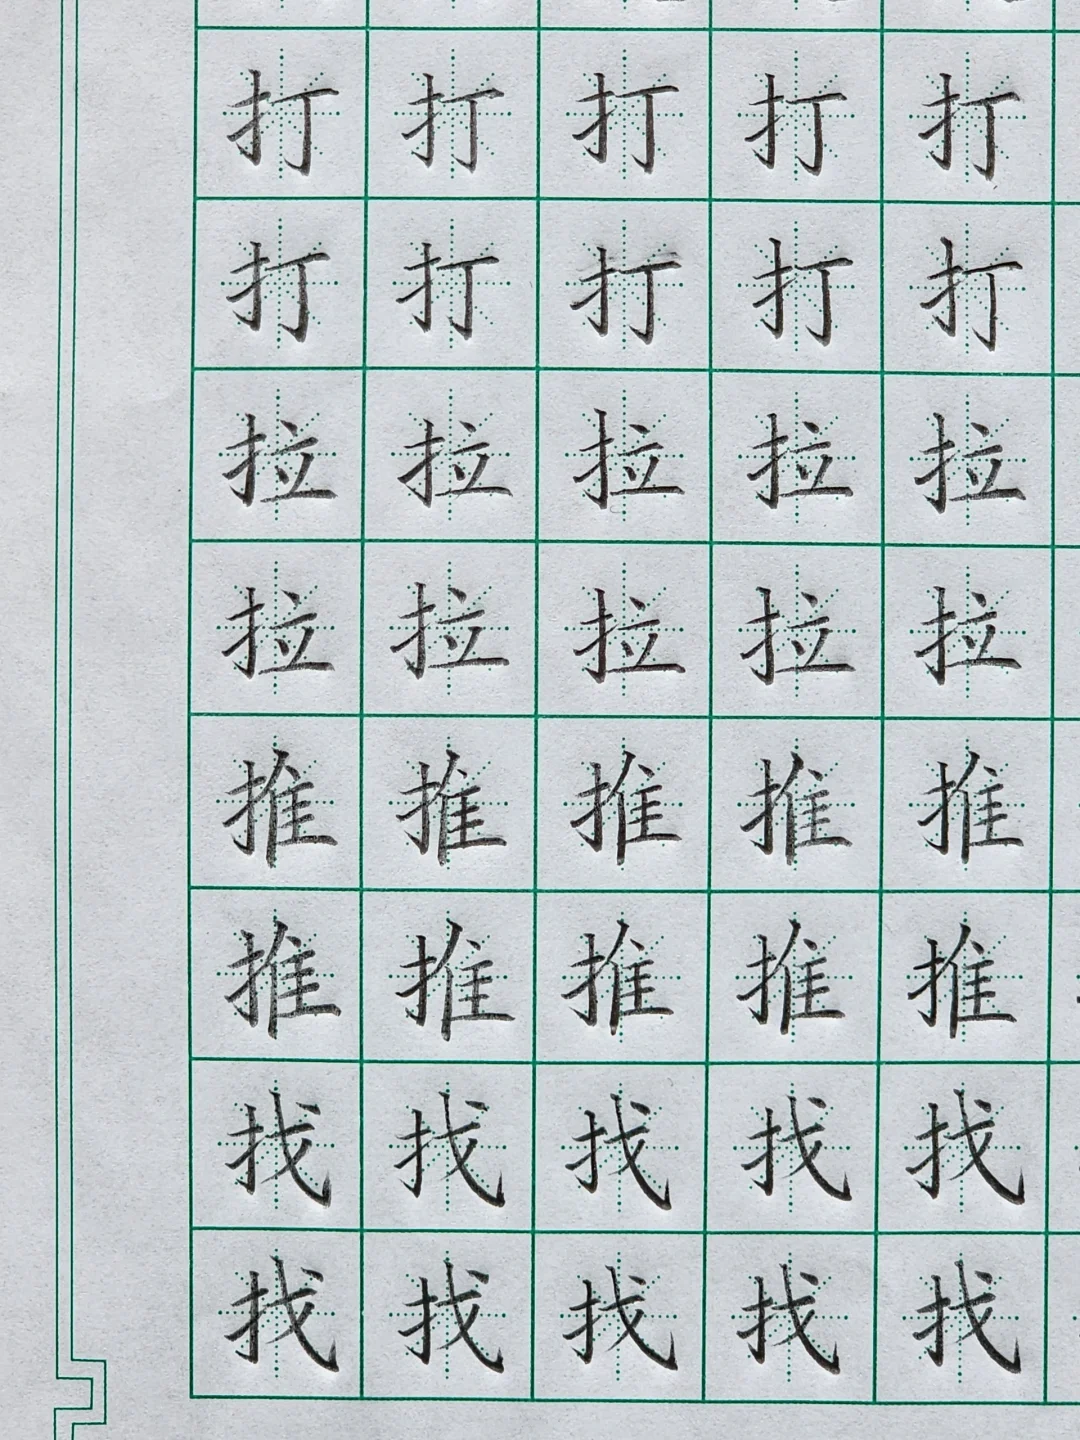 打打打打打
打打打打打
拉拉拉拉拉
拉拉拉拉拉
推推推推推
推推推推推
找找找找找
找找找找找